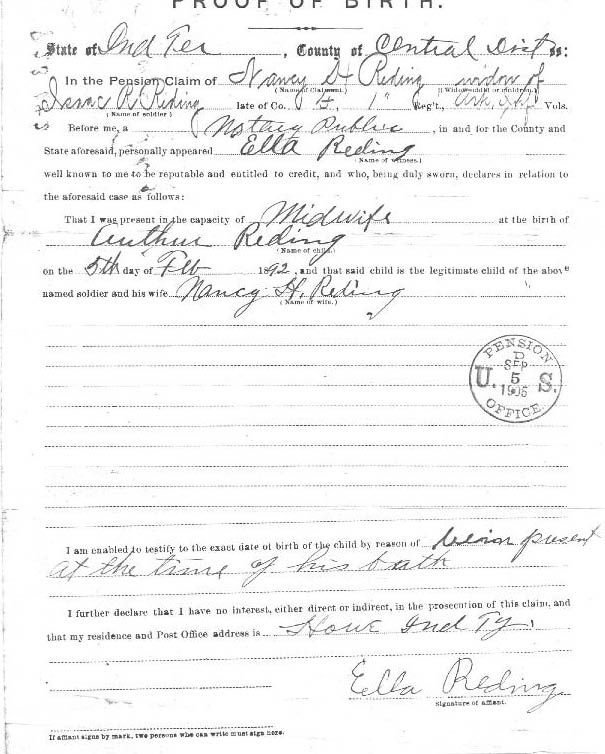 PROOF OF BIRTH.
State of Ind Ter, County of Central Dist ss:
In the Pension Claim of Nancy H Reding widow of
(Name of Claimant.) (Widow, child or children.)
Isaac R Reding late of Co. H, 1" Reg't., Ark, Vols.
(Name of soldier)
Before me, a Notary Public, in and for the County and
State aforesaid, personally appeared Ella Reding
(Name of witness.)
well known to me to be reputable and entitled to credit, and who, being duly sworn, declares in relation to
the aforesaid case as follows:
That I was present in the capacity of Midwife at the birth of
Authur Reding
(Name of child.)
on the 5th day of Feb 1892, and that said child is the legitimate child of the above
named soldier and his wife Nancy H. Reding
(Name of wife.)
PENSION
D
SEP
U. 5 S.
1905
OFFICE.
I am enabled to testify to the exact date of birth of the child by reason of present
at the time of his bath
I further declare that I have no interest, either direct or indirect, in the prosecution of this claim, and
that my residence and Post Office address is Howe Ind Ty.
Ella Reding
Signature of affiant.
If affiant signs by mark, two persons who can write must sign here.